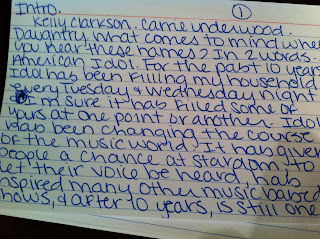 Intro. 1
Kelly Clarkson. Carrie Underwood.
Daughtry. What comes to mind when
you hear these names? In 2 words.
American Idol. For the past 10 years
Idol has been filling my household
every Tuesday & Wednesday night
I'm sure it has filled some of
yours at one point or another. Idol
has been changing the course
of the music world. It has given
people a chance at stardom, to
let their voice be heard, has
nspired many other music based
hows, & after 10 years, is still one